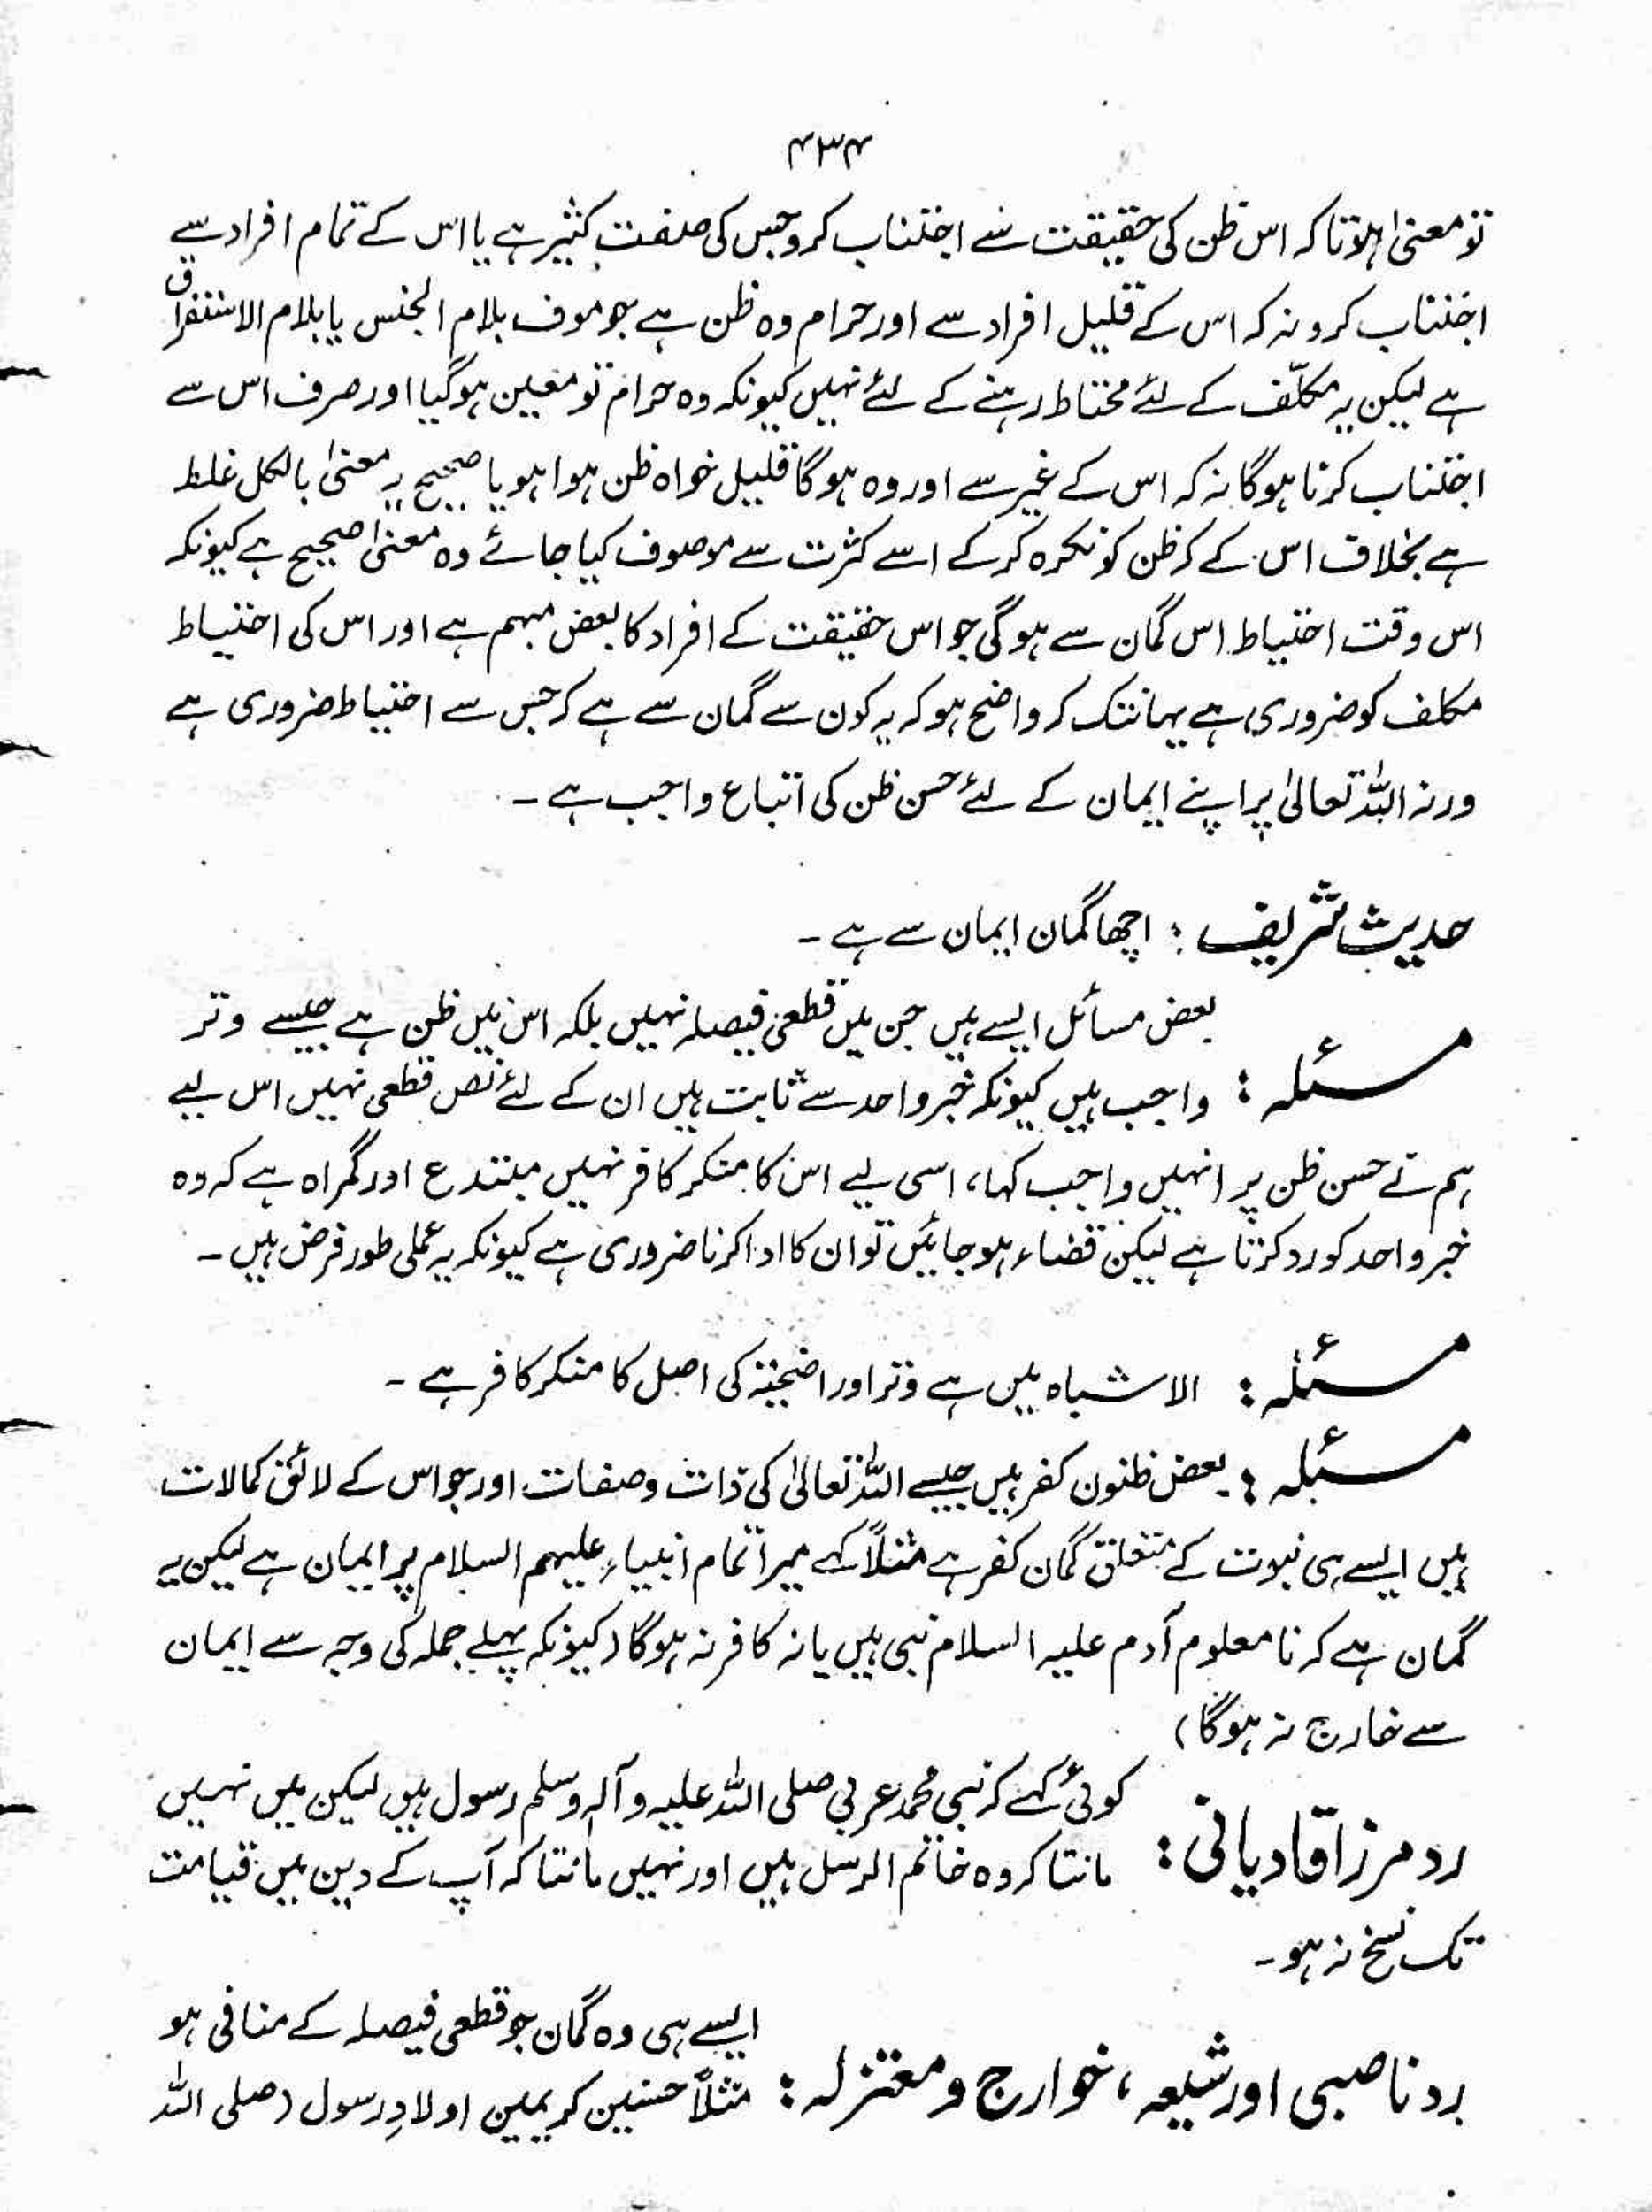 ۴۳۴
تو معنیٰ ہوتا کہ اس ظن کی حقیقت سے اجتناب کرو جس کی صفت کثیر ہے یا اس کے تمام افراد سے
اجتناب کرو نہ کہ اس کے قلیل افراد سے اور حرام وہ ظن ہے جو موف بلام الجنس یا بلام الاستغراق
ہے لیکن یہ مکلّف کے لئے محتاط رہنے کے لئے نہیں کیونکہ وہ حرام تو معین ہو گیا اور صرف اس سے
اجتناب کرنا ہو گا نہ کہ اس کے غیر سے اور وہ ہو گا قلیل خواہ ظن ہوا ہو یا صحیح یہ معنیٰ بالکل غلط
ہے بخلاف اس کے کہ ظن کو نکرہ کر کے اسے کثرت سے موصوف کیا جائے وہ معنیٰ صحیح ہے کیونکہ
اس وقت احتیاط اس گمان سے ہو گی جو اس حقیقت کے افراد کا بعض مبہم ہے اور اس کی احتیاط
مکلف کو ضروری ہے یہانتک کہ واضح ہو کہ یہ کون سے گمان سے ہے کہ جس سے احتیاط ضروری ہے
ورنہ اللہ تعالیٰ پر اپنے ایمان کے لئے حسن ظن کی اتباع واجب ہے ۔
حدیث شریف : اچھا گمان ایمان سے ہے ۔
بعض مسائل ایسے ہیں جن میں قطعی فیصلہ نہیں بلکہ اس میں ظن ہے جیسے وتر
مسئلہ : واجب ہیں کیونکہ خبر واحد سے ثابت ہیں ان کے لئے نص قطعی نہیں اس لیے
ہم نے حسن ظن پر انہیں واجب کہا، اسی لیے اس کا منکر کافر نہیں مبتدع اور گمراہ ہے کہ وہ
خبر واحد کو رد کرتا ہے لیکن قضاء ہو جائیں تو ان کا ادا کرنا ضروری ہے کیونکہ یہ عملی طور فرض ہیں ۔
مسئلہ : الاشباہ میں ہے وتر اور اضحیۃ کی اصل کا منکر کافر ہے ۔
مسئلہ : بعض ظنون کفر ہیں جیسے اللہ تعالیٰ کی ذات و صفات اور جو اس کے لائق کمالات
ہیں ایسے ہی نبوت کے متعلق گمان کفر ہے مثلاً کہے میرا تمام انبیاء علیہم السلام پر ایمان ہے لیکن یہ
گمان ہے کہ نامعلوم آدم علیہ السلام نبی ہیں یا نہ کافر نہ ہو گا (کیونکہ پہلے جملہ کی وجہ سے ایمان
سے خارج نہ ہو گا)
کوئی کہے کہ نبی محمد عربی صلی اللہ علیہ وآلہ وسلم رسول ہیں لیکن میں نہیں
رد مرزا قادیانی : مانتا کہ وہ خاتم الرسل ہیں اور نہیں مانتا کہ آپ کے دین میں قیامت
تک نسخ نہ ہو ۔
ایسے ہی وہ گمان جو قطعی فیصلہ کے منافی ہو
رد ناصبی اور شیعہ، خوارج و معتزلہ : مثلاً حسنین کریمین اولادِ رسول (صلی اللہ